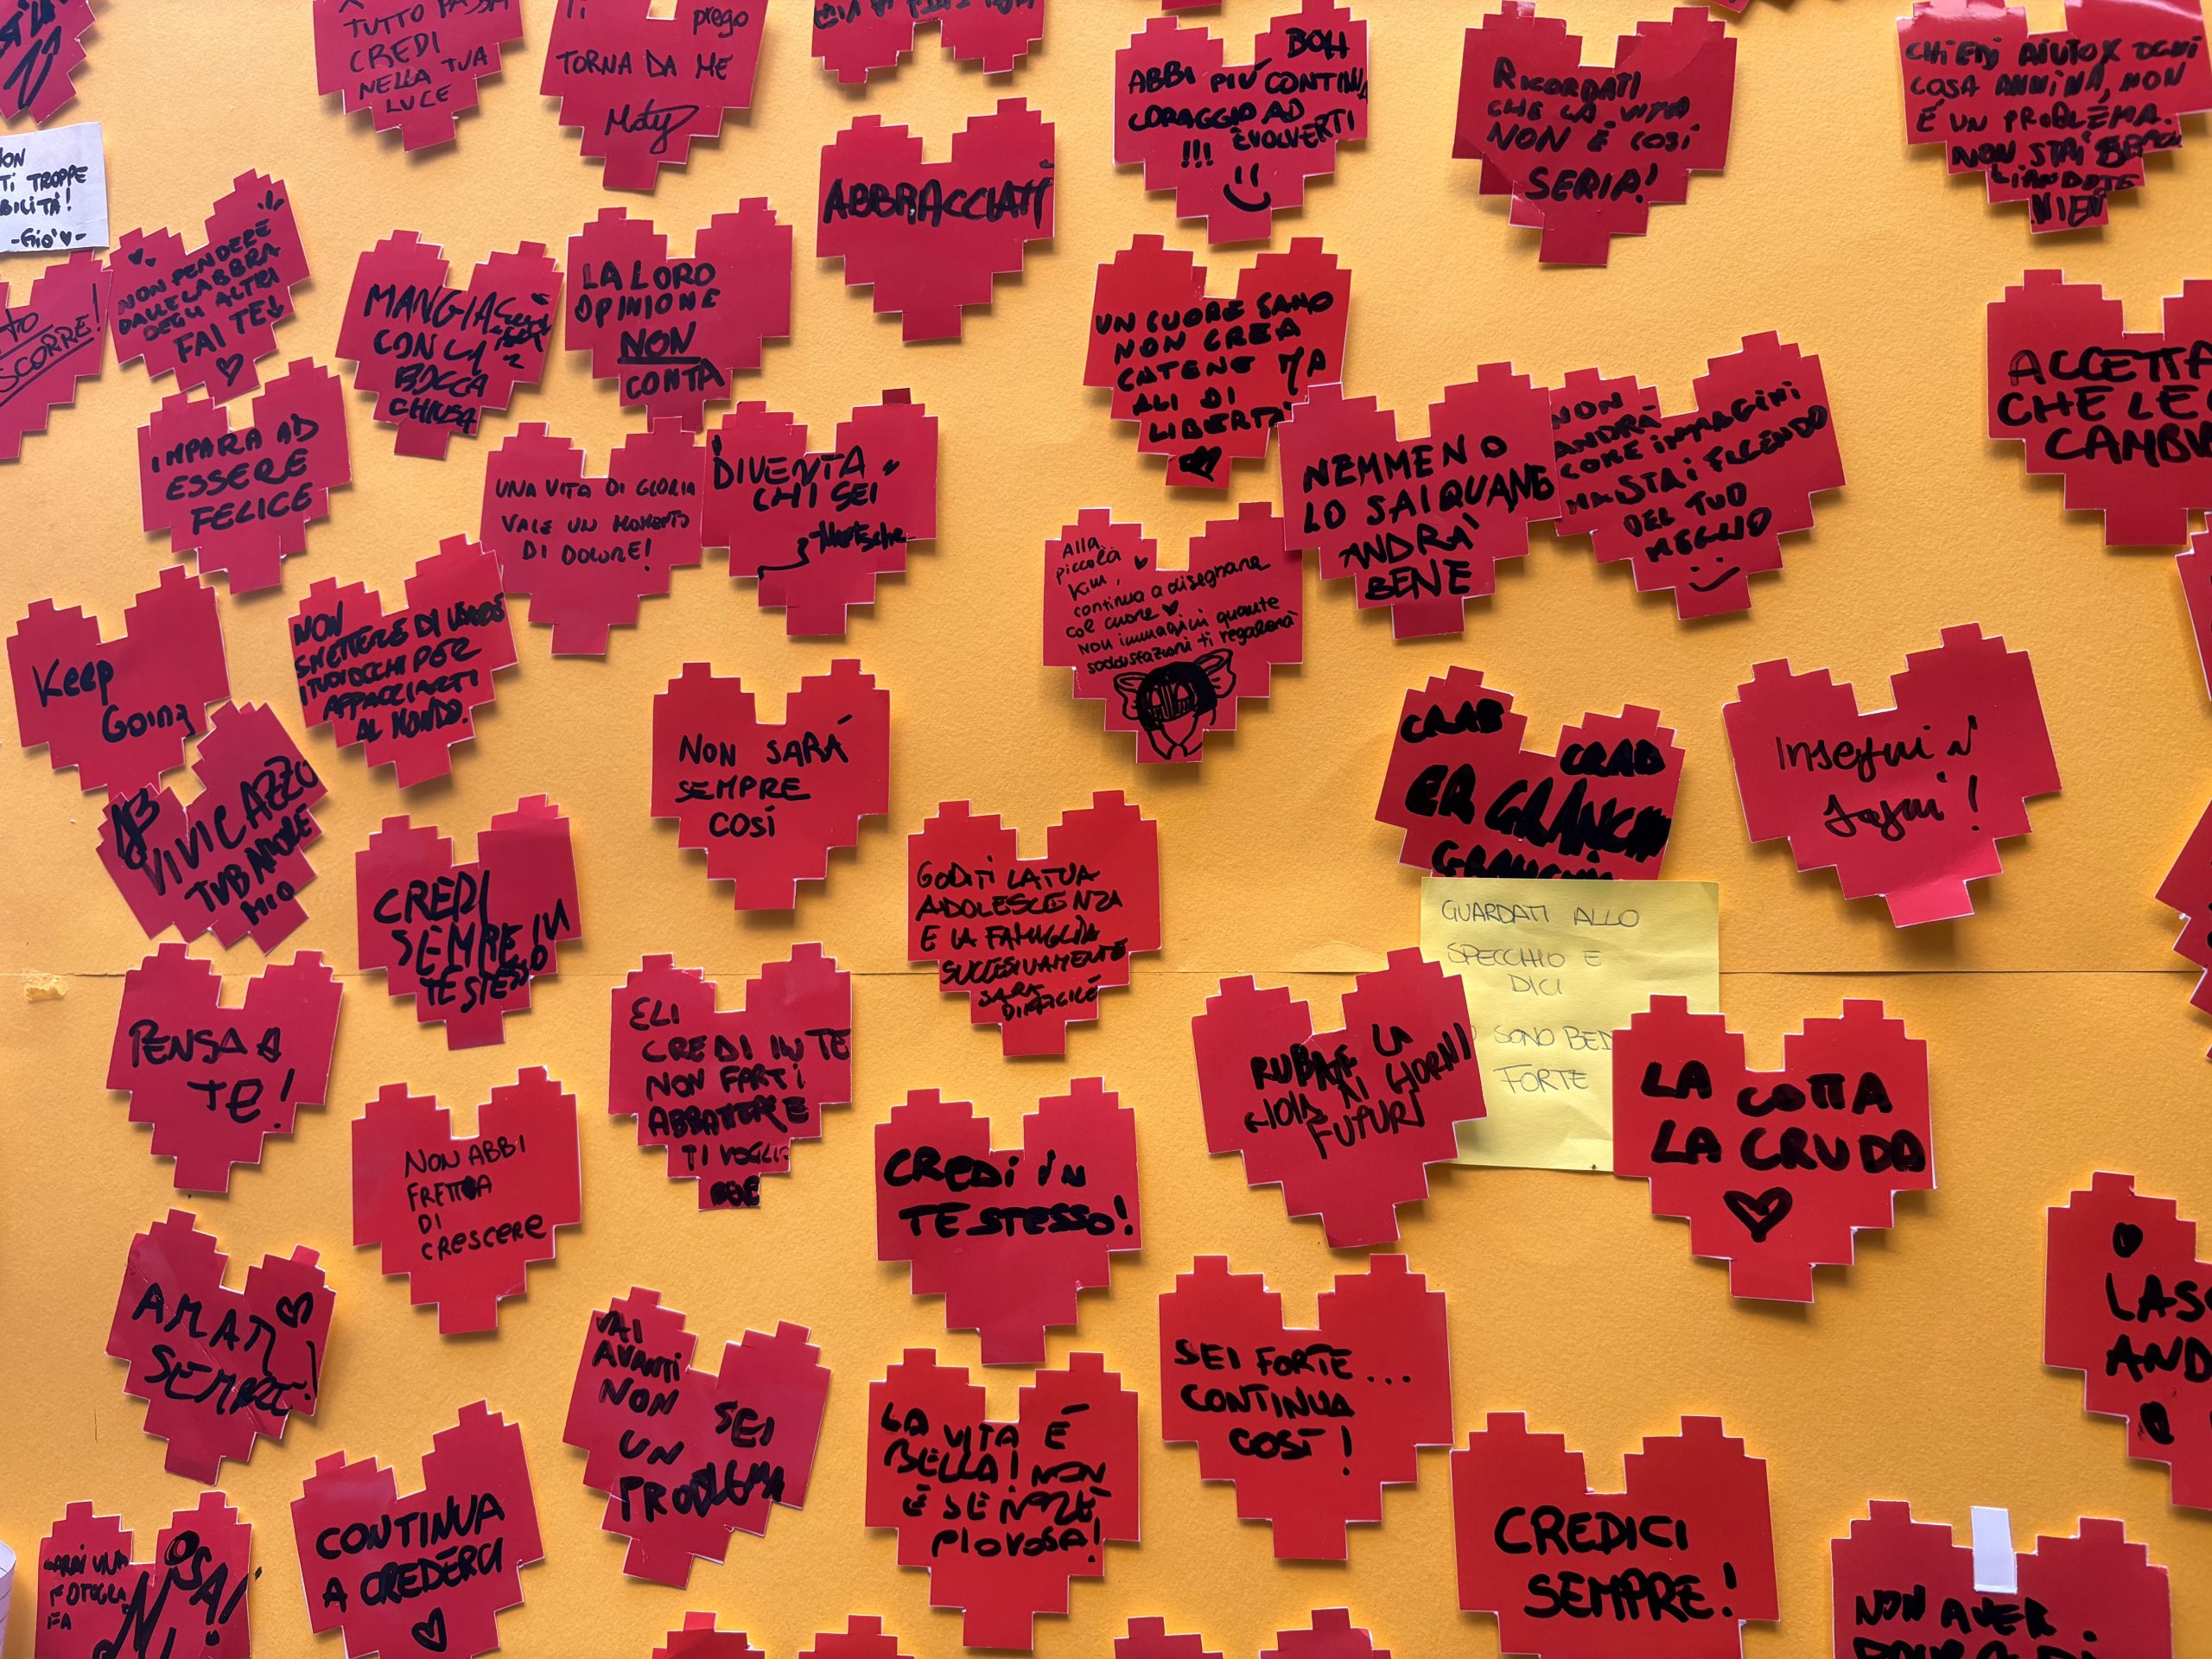 TUTTO PASSA
CREDI
NELLA TUA
LUCE
Ti prego
TORNA DA ME
Maty
ABBRACCIATI
BOH
ABBI PIÙ CONTINUA
CORAGGIO AD
EVOLVERTI
!!!
RICORDATI
CHE LA VITA
NON È COSÌ
SERIA!
CHIEDI AIUTO X OGNI
COSA ANNINA, NON
È UN PROBLEMA.
NON STAI
NON
TI TROPPE
BILITÀ!
-Gio'♥-
SCORRE!
NON PENDERE
DALLE LABBRA
DEGLI ALTRI
FAI TE!
MANGIA
CON LA
BOCCA
CHIUSA
LA LORO
OPINIONE
NON
CONTA
UN CUORE SANO
NON CREA
CATENE MA
ALI DI
LIBERTÀ
NEMMENO
LO SAI QUANTO
ANDRÀ
BENE
NON
ANDRÀ
COME IMMAGINI
MA STAI FACENDO
DEL TUO
MEGLIO
ACCETTA
CHE LE
CAMBI
IMPARA AD
ESSERE
FELICE
UNA VITA DI GLORIA
VALE UN MOMENTO
DI DOLORE!
DIVENTA
CHI SEI
Nietzsche
Alla
piccola
Kim,
continua a disegnare
col cuore ♥
non immagini quante
soddisfazioni ti regalerà
Keep
Going
NON
SMETTERE DI USARE
I TUOI OCCHI PER
AFFACCIARTI
AL MONDO.
NON SARÁ
SEMPRE
COSÍ
CRAB
CRAB
ER GRANCHI
Insegui i
sogni!
VIVI CAZZO
TVB AMORE
MIO
CREDI
SEMPRE IN
TE STESSO
GODITI LA TUA
ADOLESCENZA
E LA FAMIGLIA
SUCCESSIVAMENTE
SARÀ
DIFFICILE
GUARDATI ALLO
SPECCHIO E
DICI
SONO BED
FORTE
PENSA A
TE!
ELI
CREDI IN TE
NON FARTI
ABBATTERE
TI VOGLIO
BENE
RUBATE LA
GIOIA AI GIORNI
FUTURI
LA COTTA
LA CRUDA
NON ABBI
FRETTA
DI
CRESCERE
CREDI IN
TE STESSO!
AMATI
SEMPRE!
VAI
AVANTI
NON SEI
UN
PROBLEMA
LA VITA É
BELLA! NON
É SEMPRE
PIOVOSA!
SEI FORTE...
CONTINUA
COSÌ!
LAS
AND
CONTINUA
A CREDERCI
CREDICI
SEMPRE!
SARAI UNA
FOTOGRA
FA
NON AVER
PAURA DI